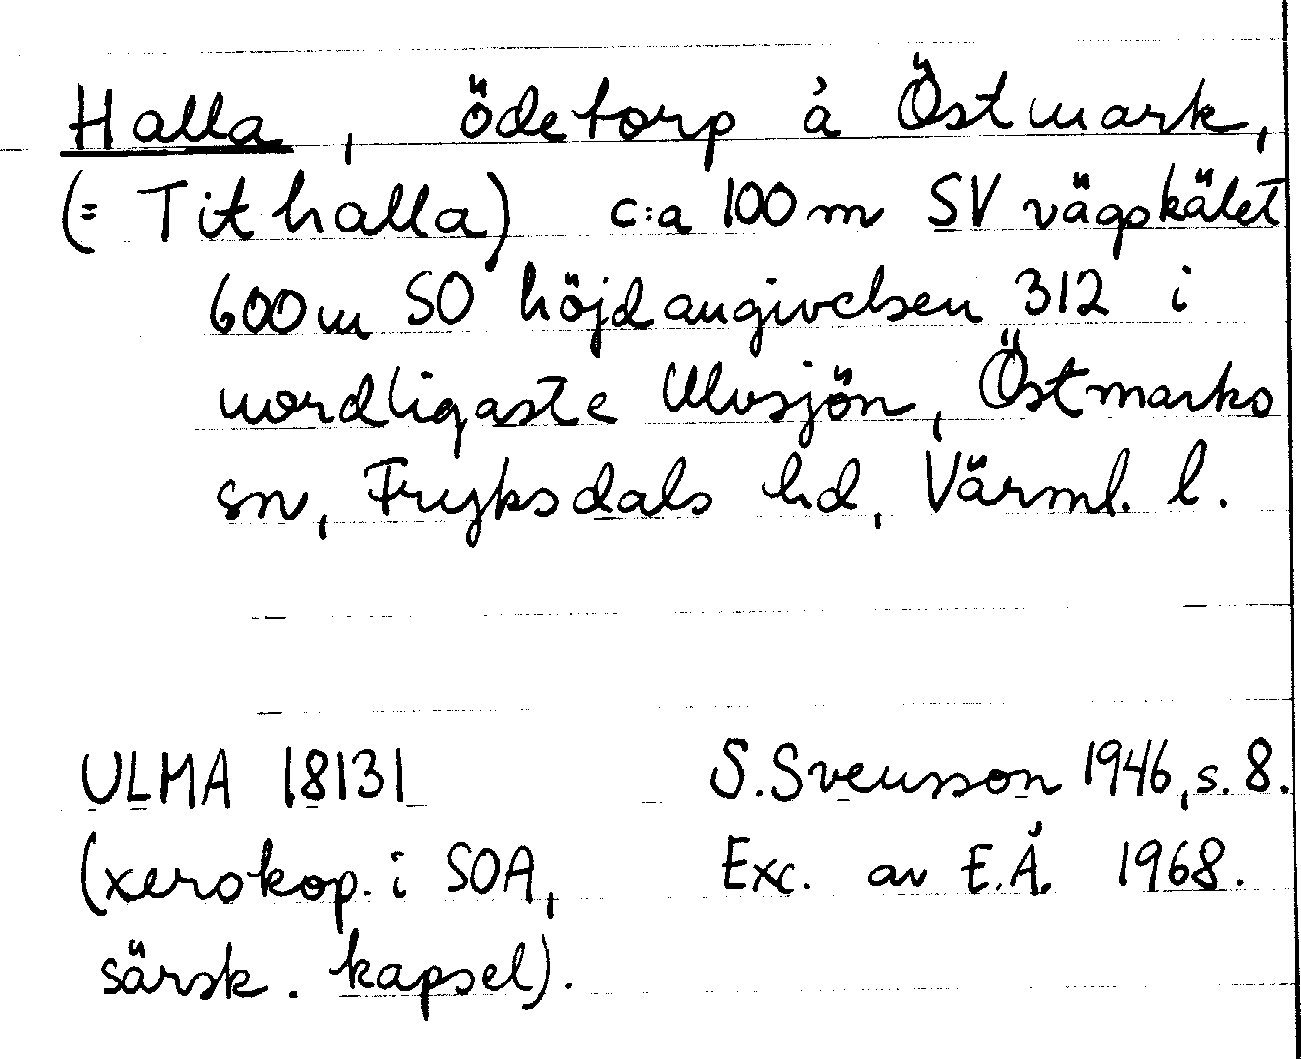 Halla, ödetorp å Östmark,
(= Tithalla) c:a 100 m SV vägskälet
600 m SO höjdangivelsen 312 i
nordligaste Ulvsjön, Östmarks
sn, Fryksdals hd, Värml. l.
ULMA 18131 S. Svensson 1946, s. 8.
(xerokop. i SOA, Exc. av E.Å. 1968.
särsk. kapsel).